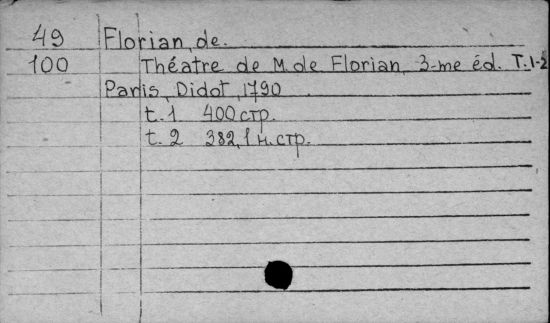 49 Florian, de.
100 Théatre de M. de Florian, 3-me éd. T. 1-2
Paris, Didot, 1790
t. 1 400 стр.
t. 2 382, 1 н. стр.